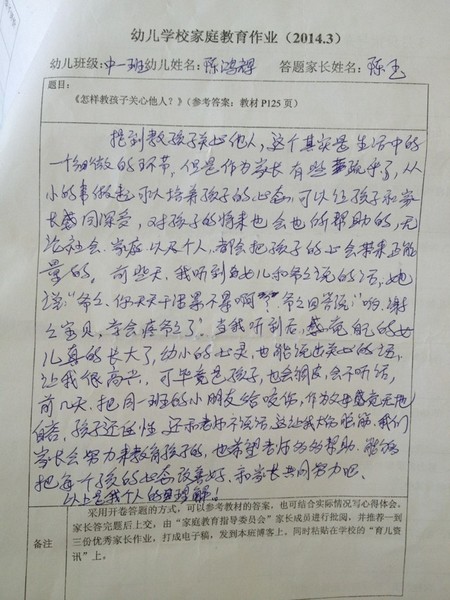 幼儿学校家庭教育作业（2014.3）
幼儿班级:中一班 幼儿姓名: 陈鸿 答题家长姓名: 陈玉
题目:
《怎样教孩子关心他人？》（参考答案：教材P125页）
提到教孩子关心他人，这个其实是生活中的
一个细微的环节，但是作为家长有些疏乎了，从
小的事做起可以培养孩子的心态，可以让孩子和家
长感同深受，对孩子的将来也会也所帮助的，无
论社会、家庭以及个人，都会把孩子的心会带来正能
量的。前些天，我听到女儿和爷爷说的话，她
说：“爷爷，你天天干活累不累啊”爷爷回答说：“哟，谢
宝贝，会疼爷爷了”当我听到后，感觉自己的女
儿真的长大了，幼小的心灵，也能说出关心的话，
让我很高兴，可毕竟是孩子，也会调皮，会不听话，
前几天，把同一班的小朋友给咬伤，作为父母感觉无地
自容，孩子还任性，还和老师不说话，这让我大伤脑筋。我们
家长会努力来教育孩子的，也希望老师的帮助，能够
把每个孩的心态改善好，和家长共同努力吧。
以上是我个人的理解。
备注
采用开卷答题的方式，可以参考教材的答案，也可结合实际情况写心得体会。
家长答完题后上交，由“家庭教育指导委员会”家长成员进行批阅，并推荐一到
三份优秀家长作业，打成电子稿，发到本班博客上，同时粘贴在学校的“育儿资
讯”上。